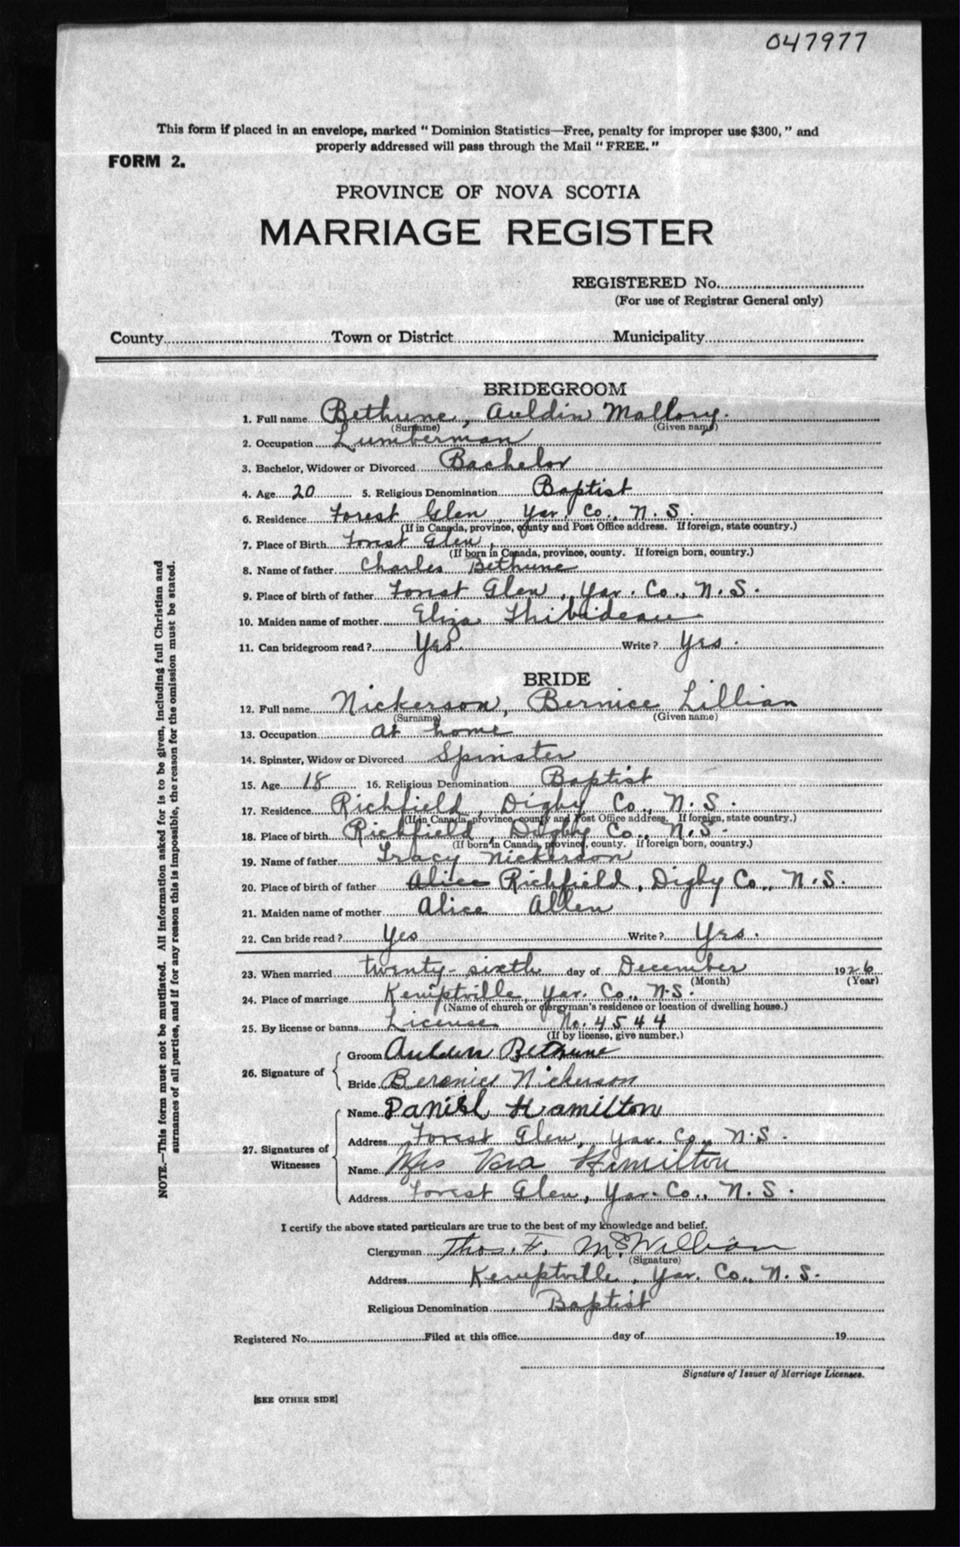 047977
This form if placed in an envelope, marked "Dominion Statistics—Free, penalty for improper use $300," and
properly addressed will pass through the Mail "FREE."
FORM 2.
PROVINCE OF NOVA SCOTIA
MARRIAGE REGISTER
REGISTERED No.
(For use of Registrar General only)
County Town or District Municipality
BRIDEGROOM
1. Full name Bethune, Auldin Mallory.
(Surname) (Given name)
2. Occupation Lumberman
3. Bachelor, Widower or Divorced Bachelor
4. Age 20 5. Religious Denomination Baptist
6. Residence Forest Glen, Yar. Co., N.S.
(If in Canada, province, county and Post Office address. If foreign, state country.)
7. Place of Birth Forest Glen,
(If born in Canada, province, county. If foreign born, country.)
8. Name of father Charles Bethune
9. Place of birth of father Forest Glen, Yar. Co., N.S.
10. Maiden name of mother Eliza Thibideau
11. Can bridegroom read? Yes. Write? Yes.
BRIDE
12. Full name Nickerson, Bernice Lillian
(Surname) (Given name)
13. Occupation at home
14. Spinster, Widow or Divorced Spinster
15. Age 18 16. Religious Denomination Baptist
17. Residence Richfield, Digby Co., N.S.
(If in Canada, province, county and Post Office address. If foreign, state country.)
18. Place of birth Richfield, Digby Co., N.S.
(If born in Canada, province, county. If foreign born, country.)
19. Name of father Tracy Nickerson
20. Place of birth of father Alice Richfield, Digby Co., N.S.
21. Maiden name of mother Alice Allen
22. Can bride read? Yes Write? Yes.
23. When married twenty-sixth day of December 1926
(Month) (Year)
24. Place of marriage Kemptville, Yar. Co., N.S.
(Name of church or clergyman's residence or location of dwelling house.)
25. By license or banns License No. 4544
(If by license, give number.)
26. Signature of Groom Aulden Bethune
Bride Berenice Nickerson
27. Signatures of Witnesses Name Daniel Hamilton
Address Forest Glen, Yar. Co., N.S.
Name Mrs Vera Hamilton
Address Forest Glen, Yar. Co., N.S.
I certify the above stated particulars are true to the best of my knowledge and belief.
Clergyman Thos. F. McWilliam
(Signature)
Address Kemptville, Yar. Co., N.S.
Religious Denomination Baptist
Registered No. Filed at this office day of 19
Signature of Issuer of Marriage Licenses.
[SEE OTHER SIDE]
NOTE.—This form must not be mutilated. All information asked for is to be given, including full Christian and
surnames of all parties, and if for any reason this is impossible, the reason for the omission must be stated.